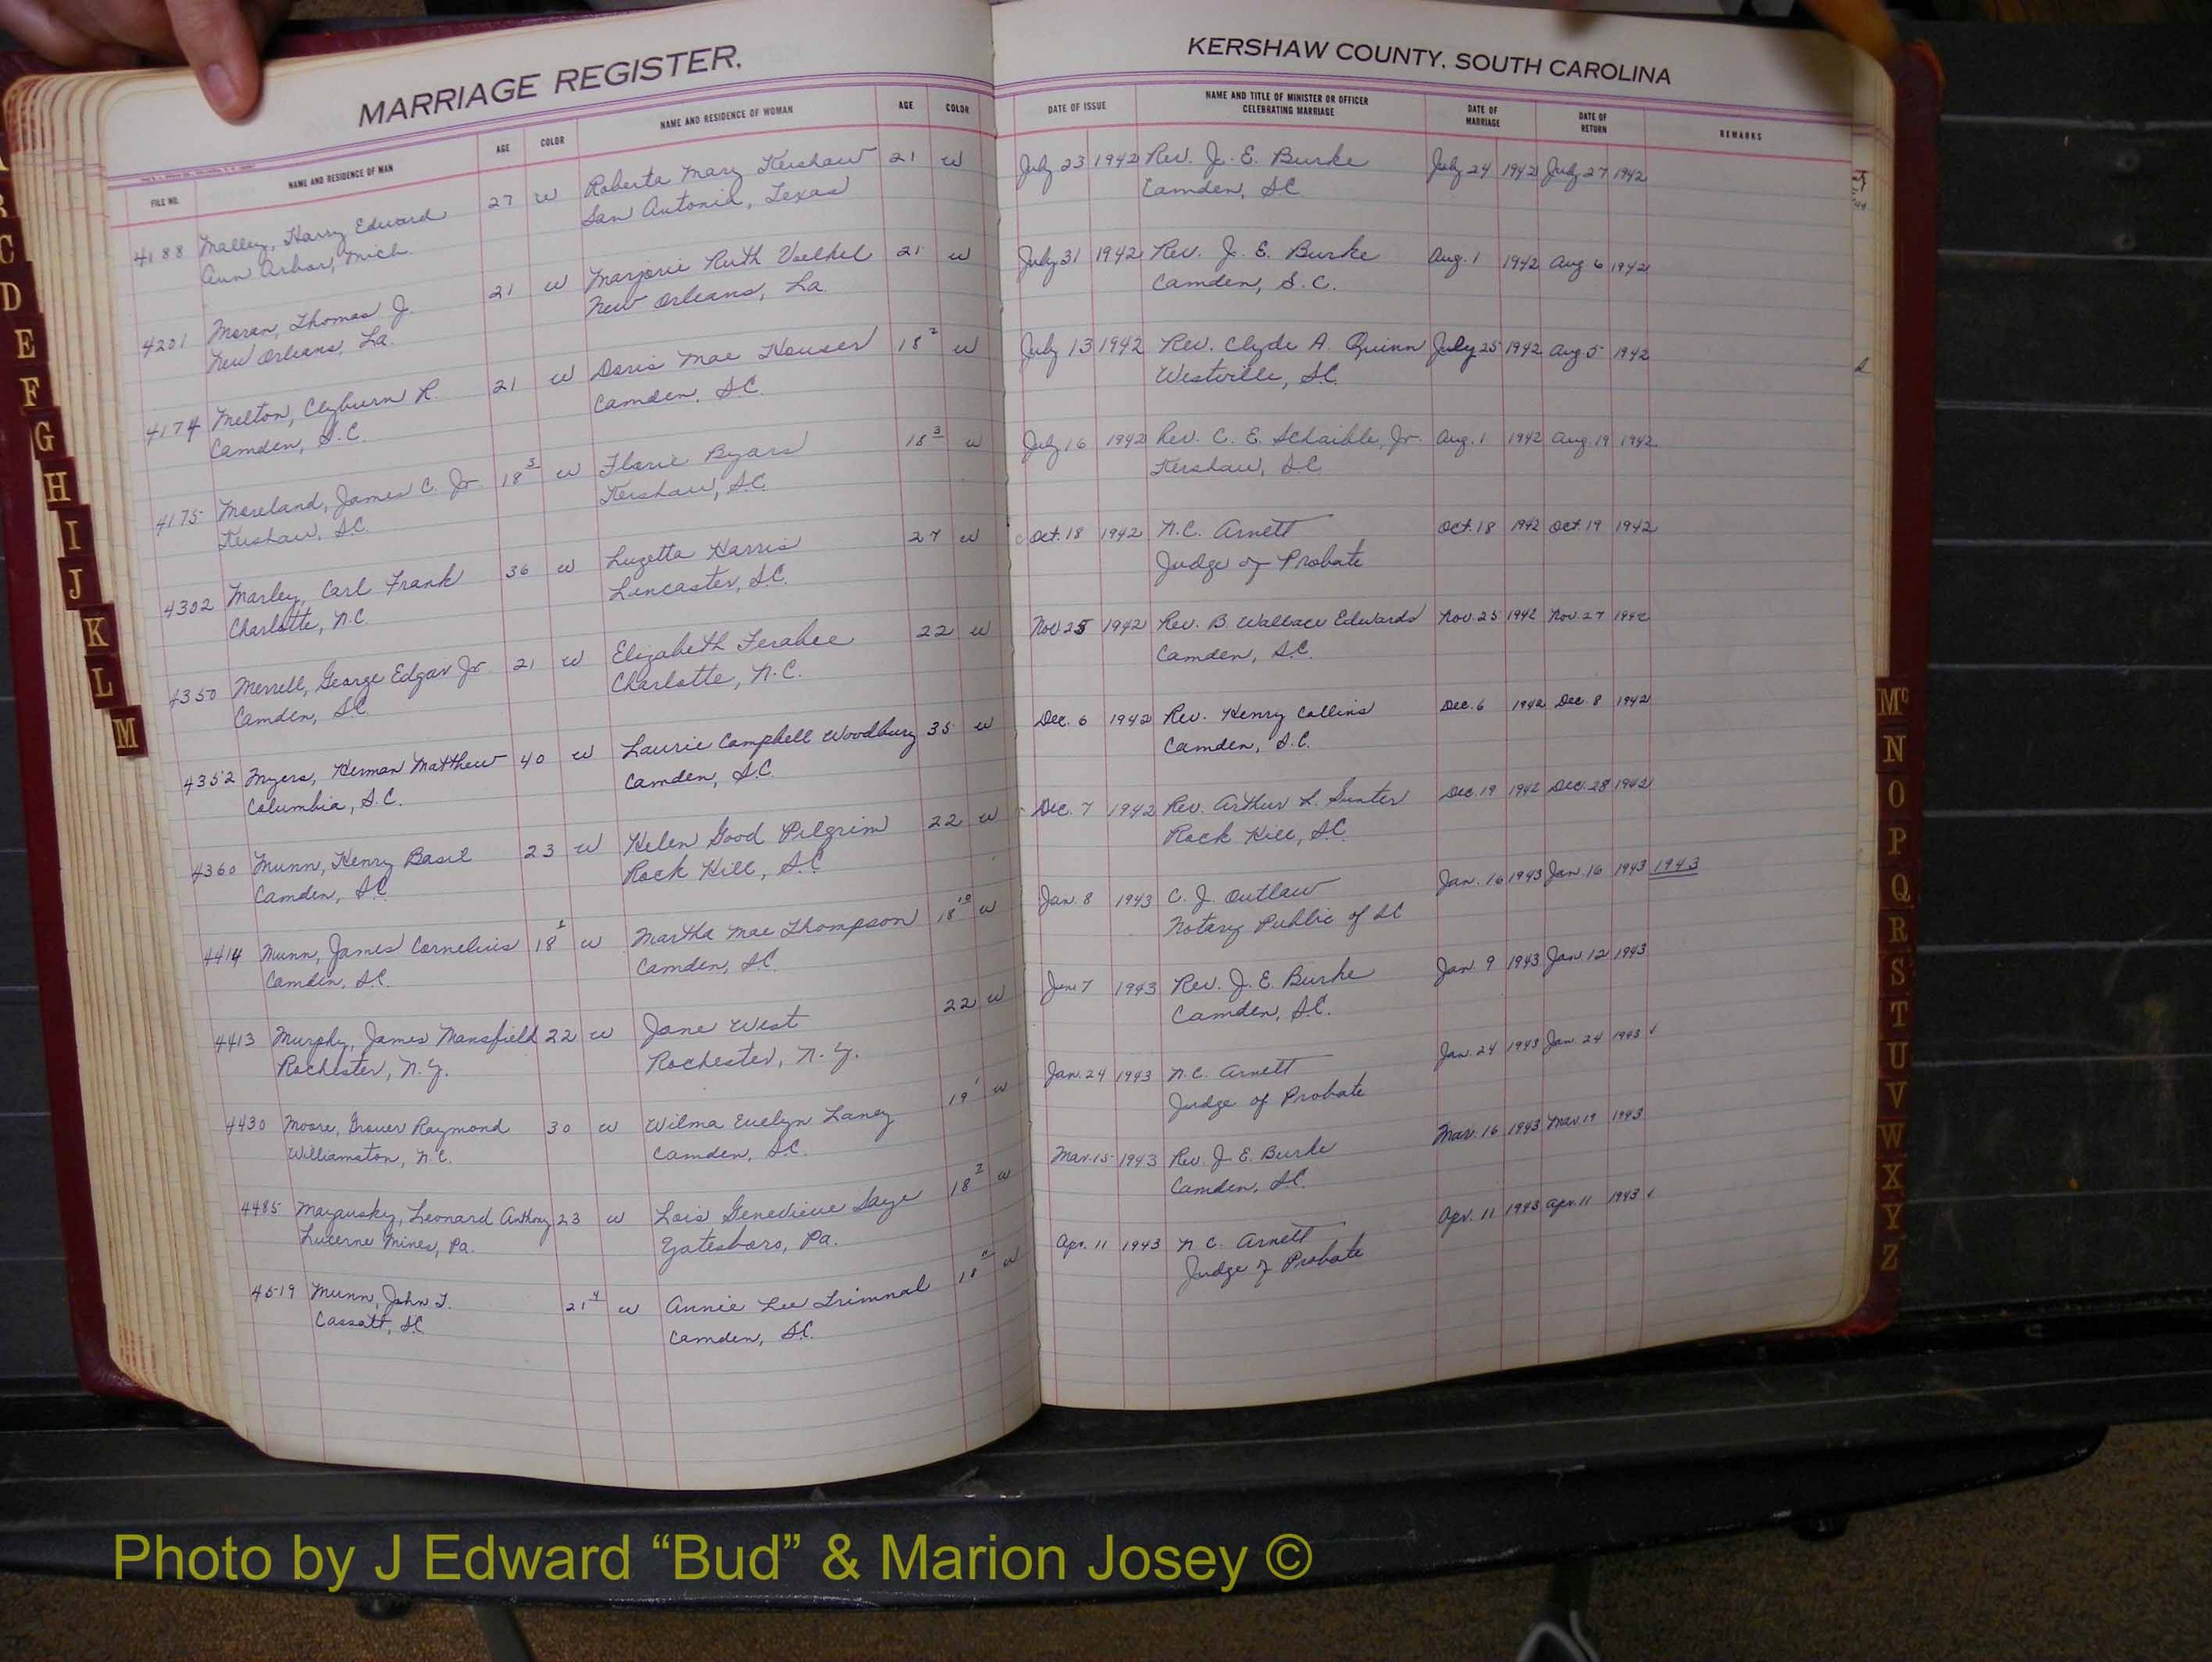 MARRIAGE REGISTER.
FILE NO. NAME AND RESIDENCE OF MAN AGE COLOR NAME AND RESIDENCE OF WOMAN AGE COLOR
4188 Malley, Harry Edward 27 W Roberta Mary Kershaw 21 W
Ann Arbor, Mich. San Antonio, Texas
4201 Moran, Thomas J. 21 W Marjorie Ruth Voelkel 21 W
New Orleans, La. New Orleans, La
4174 Melton, Clyburn R. 21 W Doris Mae Houser 18 2 W
Camden, S.C. Camden, S.C.
4175 Moreland, James C. Jr. 18 W Florie Byars 18 3 W
Kershaw, S.C. Kershaw, S.C.
4302 Marley, Carl Frank 36 W Luzetta Harris 27 W
Charlotte, N.C Lincaster, S.C.
4350 Merrell, George Edgar Jr. 21 W Elizabeth Ferabee 22 W
Camden, S.C. Charlotte, N.C.
4352 Myers, Herman Matthew 40 W Laurie Campbell Woodbury 35 W
Columbia, S.C. Camden, S.C
4360 Munn, Henry Basil 23 W Helen Good Pilgrim 22 W
Camden, S.C Rock Hill, S.C
4414 Munn, James Cornelius 18 1 W Martha Mae Thompson 18 10 W
Camden, S.C. Camden, S.C.
4413 Murphy, James Mansfield 22 W Jane West 22 W
Rochester, N.Y. Rochester, N.Y.
4430 Moore, Grover Raymond 30 W Wilma Evelyn Laney 19 1 W
Williamston, N.C. Camden, S.C.
4485 Leonard Anthony 23 W Lois Genevieve Saye 18 W
Lucerne Mines, Pa. Yatesboro, Pa.
4519 Munn, John T. 21 4 W Annie Lee Trimnal 18 W
Cassatt, S.C. Camden, S.C.
KERSHAW COUNTY, SOUTH CAROLINA
DATE OF ISSUE NAME AND TITLE OF MINISTER OR OFFICER CELEBRATING MARRIAGE DATE OF MARRIAGE DATE OF RETURN REMARKS
July 23 1942 Rev. J. E. Burke July 24 1942 July 27 1942
Camden, S.C.
July 31 1942 Rev. J. E. Burke Aug. 1 1942 Aug 6 1942
Camden, S.C.
July 13 1942 Rev. Clyde A. Quinn July 25 1942 Aug 5 1942
Westville, S.C.
July 16 1942 Rev. C. E. Schaible, Jr. Aug. 1 1942 Aug. 19 1942
Kershaw, S.C
Oct. 18 1942 N.C. Arnett Oct. 18 1942 Oct. 19 1942
Judge of Probate
Nov 25 1942 Rev. B. Wallace Edwards Nov. 25 1942 Nov. 27 1942
Camden, S.C.
Dec. 6 1942 Rev. Henry Collins Dec. 6 1942 Dec. 8 1942
Camden, S.C.
Dec. 7 1942 Rev. Arthur L. Sumter Dec. 19 1942 Dec. 28 1942
Rock Hill, S.C.
Jan. 8 1943 C. J. Outlaw Jan. 16 1943 Jan. 16 1943 1943
Notary Public of SC
7 1943 Rev. J. E. Burke Jan. 9 1943 Jan. 12 1943
Camden, S.C.
Jan. 24 1943 N.C. Arnett Jan. 24 1943 Jan. 24 1943 ✓
Judge of Probate
Mar. 15 1943 Rev. J. E. Burke Mar. 16 1943 Mar. 19 1943
Camden, S.C.
Apr. 11 1943 N C. Arnett Apr. 11 1943 Apr. 11 1943 ✓
Judge of Probate
C
D
E
F
G
H
I
J
K
L
M
Mc
N
O
P
Q
R
S
T
U
V
W
X
Y
Z
Photo by J Edward “Bud” & Marion Josey ©